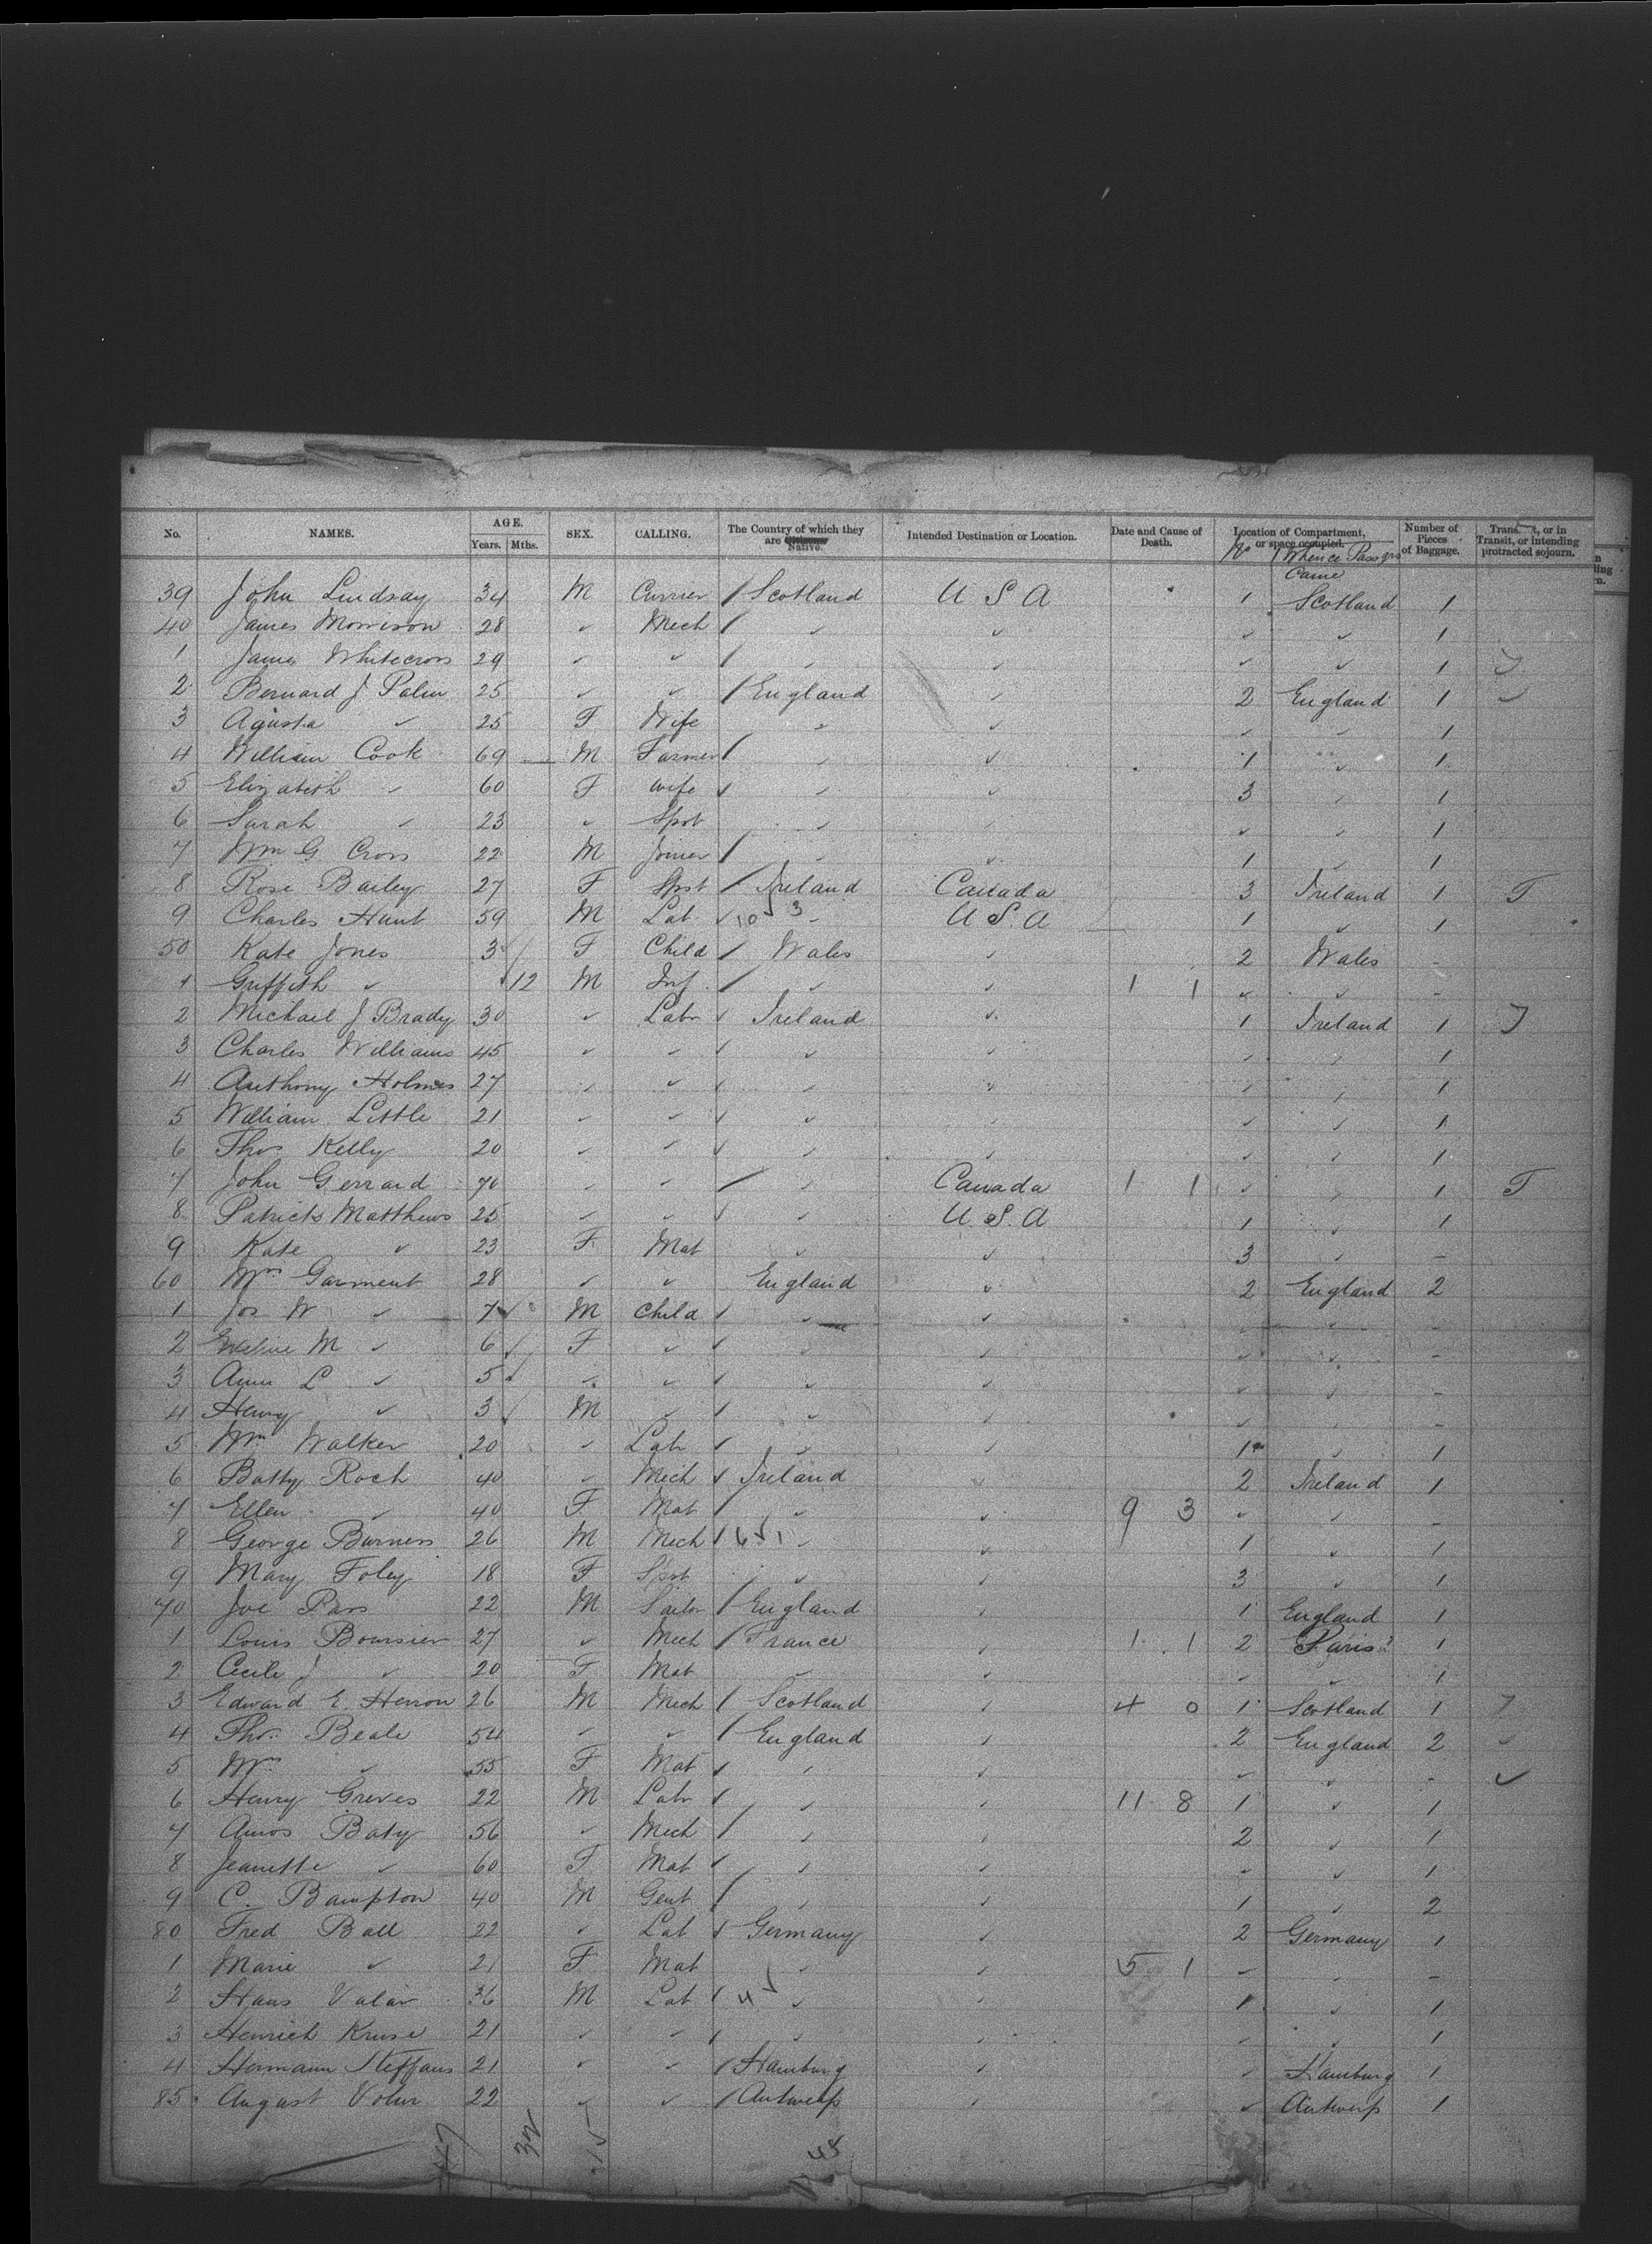 No. NAMES. AGE. Years. Mths. SEX. CALLING. The Country of which they are Native. Intended Destination or Location. Date and Cause of Death. Location of Compartment, or space occupied. No Whence Passgrs Came Number of Pieces of Baggage. Transit, or in Transit, or intending protracted sojourn.
39 John Lindsay 34 M Currier / Scotland U S A 1 Scotland 1
40 James Morrison 28 ✓ Mech / ✓ ✓ ✓ ✓ 1
1 James Whitecross 29 ✓ ✓ / ✓ ✓ ✓ ✓ 1 T
2 Bernard J Palin 25 ✓ ✓ / England ✓ 2 England 1 ✓
3 Agusta ✓ 25 F Wife ✓ ✓ ✓ ✓ 1
4 William Cook 69 M Farmer / ✓ ✓ 1 ✓ 1
5 Elizabeth ✓ 60 F wife ✓ ✓ ✓ 3 ✓ 1
6 Sarah ✓ 23 ✓ Spst ✓ ✓ ✓ ✓ 1
7 Wm G Cross 22 M Joiner / ✓ ✓ 1 ✓ 1
8 Rose Bailey 27 F Spst / Ireland Canada 3 Ireland 1 T
9 Charles Hunt 59 M Lab ✓ 10 3 U S. A 1 ✓ 1
50 Kate Jones 3 F Child / Wales ✓ 2 Wales -
1 Griffith ✓ 12 M Inf / ✓ ✓ 1 1 ✓ ✓ -
2 Michael J Brady 30 ✓ Labr ✓ Ireland ✓ 1 Ireland 1 T
3 Charles Williams 45 ✓ ✓ ✓ ✓ ✓ ✓ ✓ 1
4 Anthony Holmes 27 ✓ ✓ ✓ ✓ ✓ ✓ ✓ 1
5 William Little 21 ✓ ✓ ✓ ✓ ✓ ✓ ✓ 1
6 Thos Kelly 20 ✓ ✓ ✓ ✓ ✓ ✓ ✓ 1
7 John Gerrard 70 ✓ ✓ / ✓ Canada 1 1 ✓ ✓ 1 T
8 Patrick Matthews 25 ✓ ✓ ✓ ✓ U. S. A 1 ✓ 1
9 Kate ✓ 23 F Mat ✓ ✓ 3 ✓ -
60 Mrs Garment 28 ✓ ✓ England ✓ 2 England 2
1 Jos W ✓ 7 M Child / ✓ ✓ ✓ ✓ -
2 M ✓ 6 F ✓ ✓ ✓ ✓ ✓ ✓ -
3 Ann L ✓ 5 ✓ ✓ ✓ ✓ ✓ ✓ ✓ -
4 Henry ✓ 3 M ✓ / ✓ ✓ ✓ ✓ -
5 Wm Walker 20 ✓ Labr / ✓ ✓ 1 ✓ 1
6 Batty Roch 40 ✓ Mech ✓ Ireland ✓ 2 Ireland 1
7 Ellen ✓ 40 F Mat / ✓ ✓ 9 3 ✓ ✓ -
8 George Burness 26 M Mech / 6 1 ✓ ✓ 1 ✓ 1
9 Mary Foley 18 F Spst ✓ ✓ 3 ✓ 1
70 Joe Pass 22 M Sailor / England ✓ 1 England 1
1 Louis Boursier 27 ✓ Mech / France ✓ 1 1 2 Paris 1
2 Cecile J ✓ 20 F Mat ✓ ✓ ✓ ✓ 1
3 Edward E Herron 26 M Mech / Scotland ✓ 4 0 1 Scotland 1 T
4 Thos Beale 54 ✓ ✓ / England ✓ 2 England 2 ✓
5 Mrs ✓ 55 F Mat / ✓ ✓ ✓ ✓ - ✓
6 Henry Greves 22 M Labr ✓ ✓ ✓ 11 8 1 ✓ 1
7 Amos Baty 56 ✓ Mech / ✓ ✓ 2 ✓ 1
8 Jeanette ✓ 60 F Mat ✓ ✓ ✓ ✓ ✓ 1
9 C. Bampton 40 M Gent / ✓ ✓ 1 ✓ 2
80 Fred Ball 22 ✓ Lab ✓ Germany ✓ 2 Germany 1
1 Marie ✓ 21 F Mat ✓ ✓ 5 1 ✓ ✓ -
2 Hans 36 M Lab / 4 ✓ ✓ 1 ✓ 1
3 Henrich Kruse 21 ✓ ✓ / ✓ ✓ ✓ ✓ 1
4 Hermann Steffans 21 ✓ ✓ / Hamburg ✓ ✓ Hamburg 1
85 August 22 ✓ ✓ / Antwerp ✓ ✓ Antwerp 1
47 32 15 48